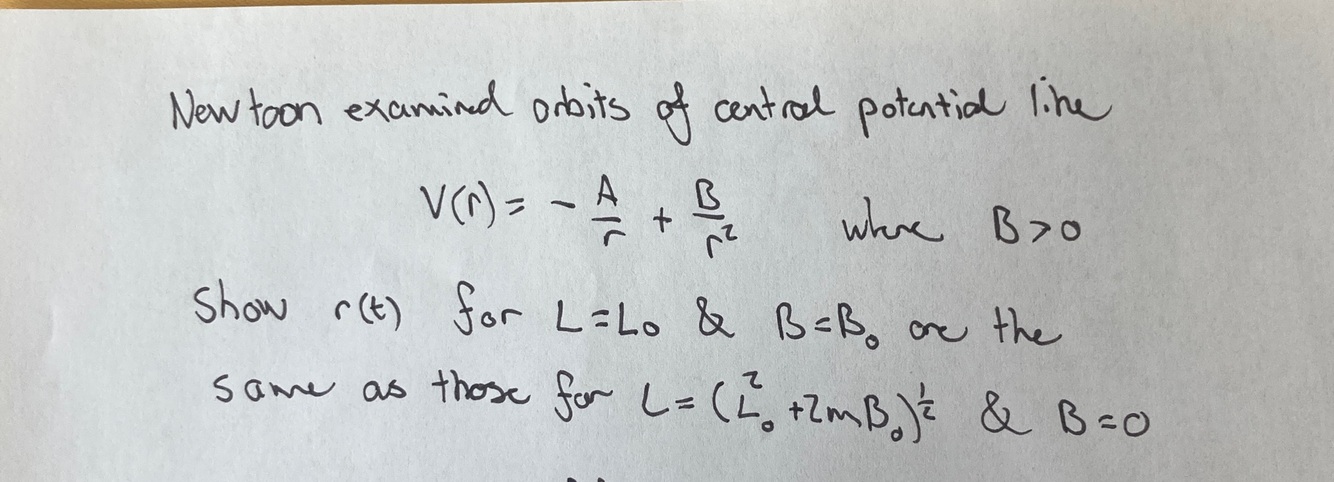 Newtoon examined orbits of central potential like
V(r) = - A/r + B/r² where B>0
Show r(t) for L=L₀ & B=B₀ are the
same as those for L=(L₀²+2mB₀)^½ & B=0